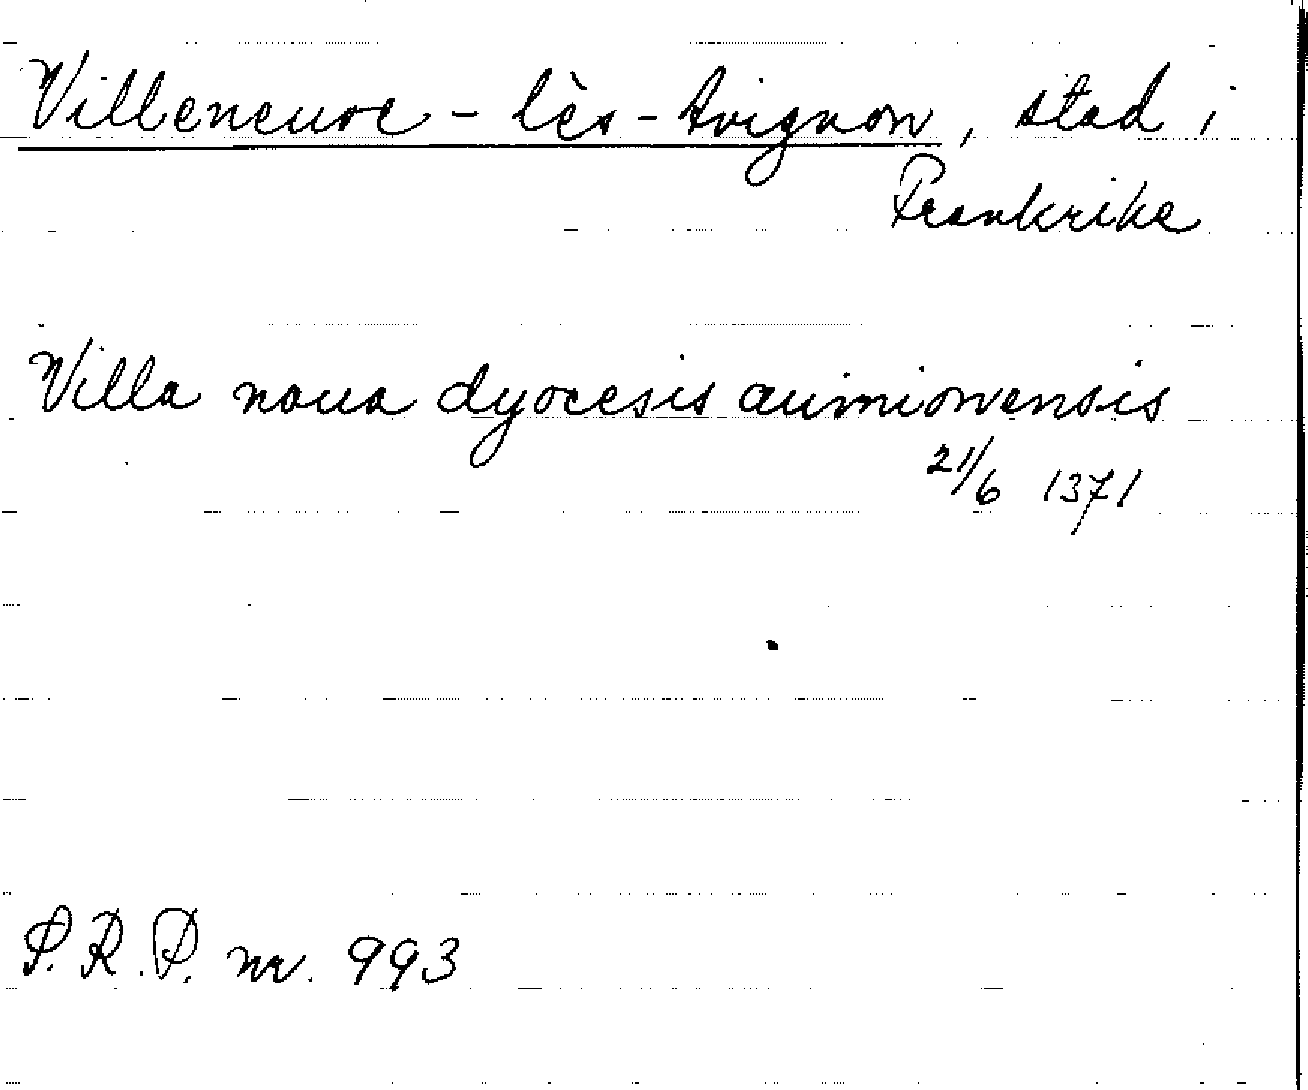 Villeneuve-lès-Avignon, stad i
Frankrike
Villa noua dyocesis auinionensis
21/6 1371
P.R.P. nr. 993